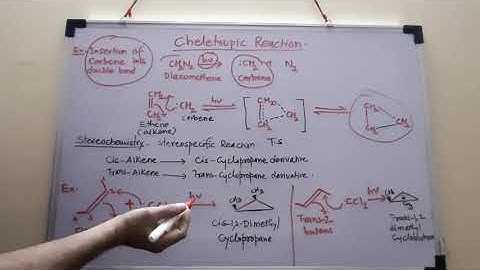 Cheletropic Reaction.
Ex: Insertion of Carbene into double bond
CH2N2 hν :CH2 + N2
Diazomethane Carbene
CH2 CH2 :CH2 hν CH2 CH2 CH2 CH2 CH2 CH2
Ethene (alkene) carbene T.S
Stereochemistry. Stereospecific Reaction
Cis-Alkene → Cis-Cyclopropane derivative
Trans-Alkene → Trans-Cyclopropane derivative.
Ex. + hν → CH3 CH3
Cis-1,2-Dimethyl Cyclopropane
Trans-2 butene :CCl2 hν → CH3
Trans-1,2 dimethyl